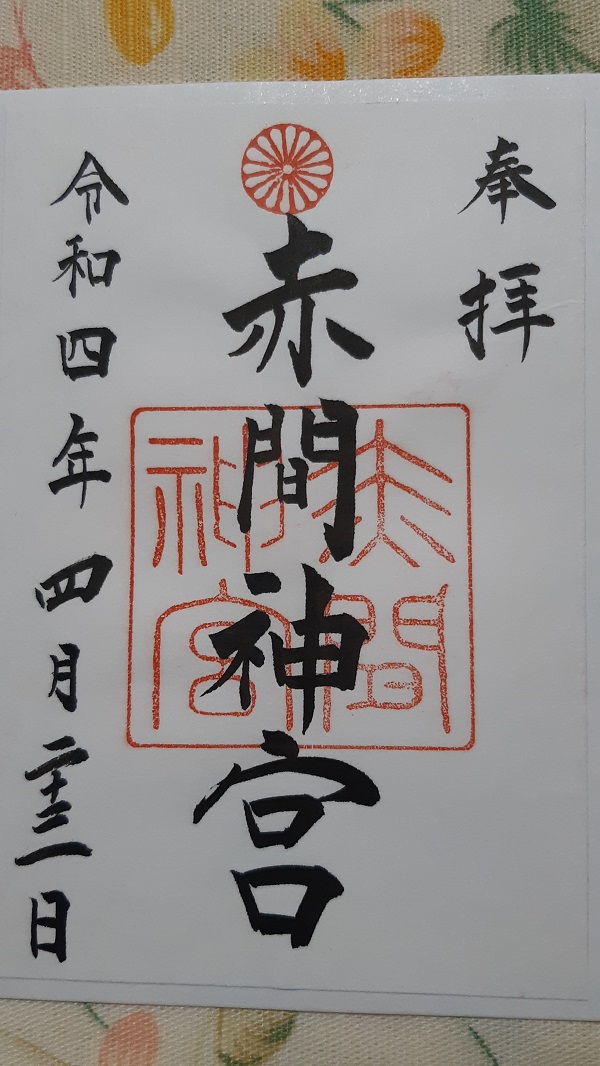 奉拝
赤間神宮
赤間
神宮
令和四年四月二十三日